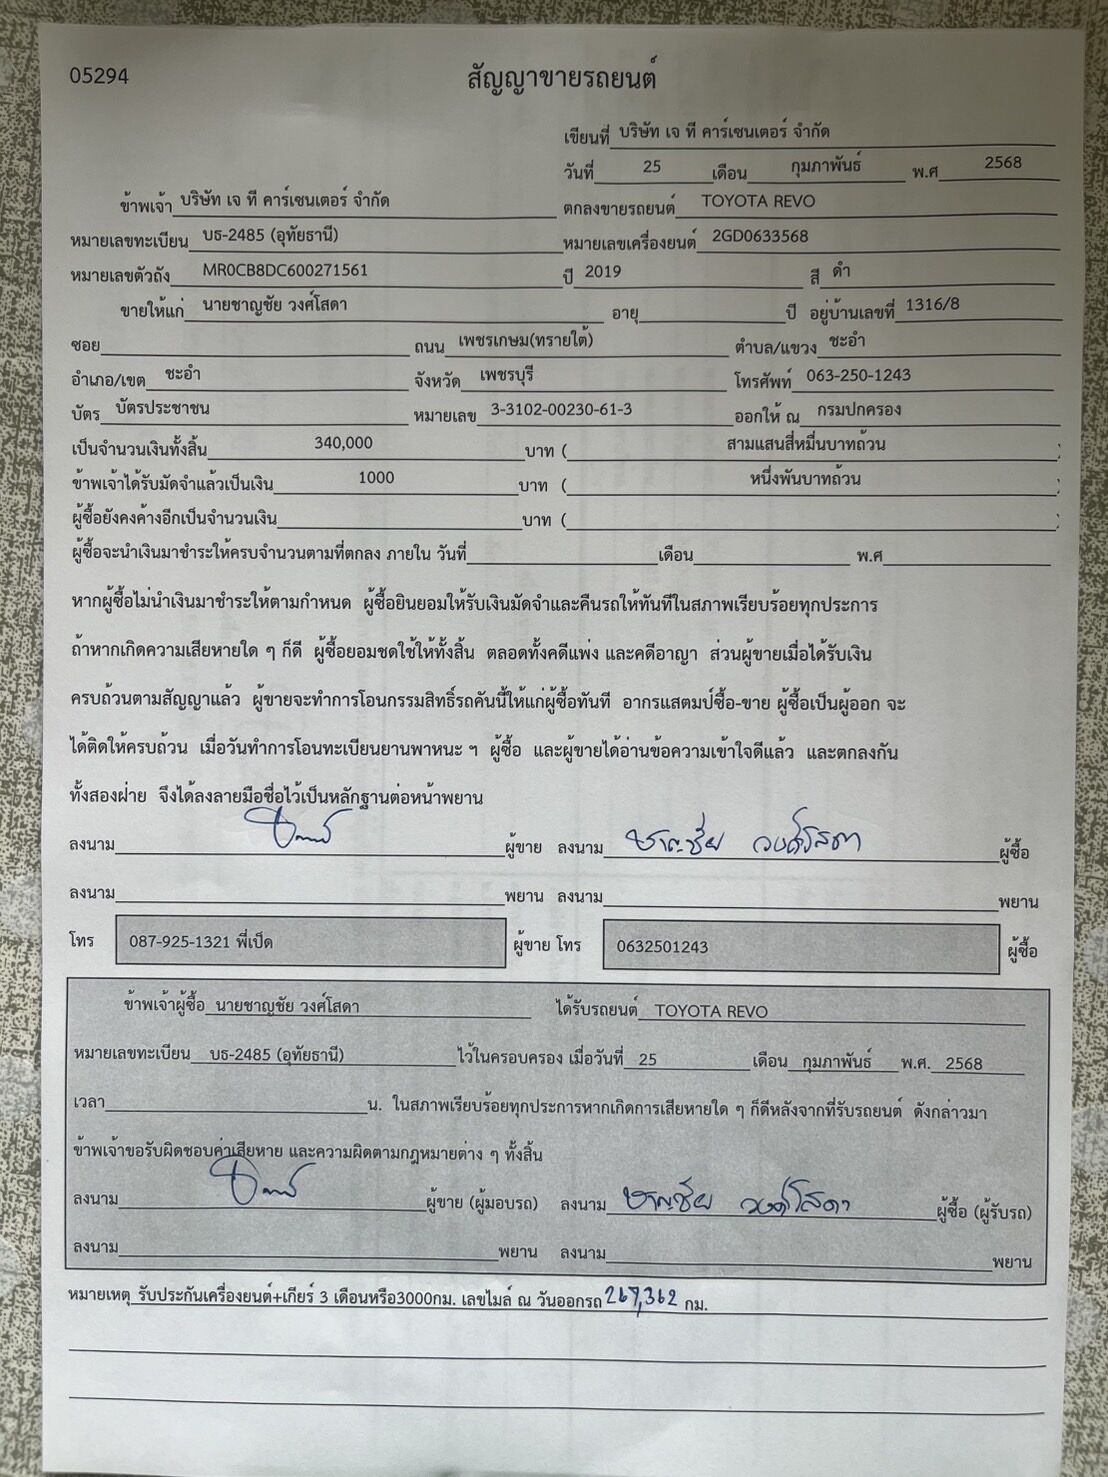 05294
สัญญาขายรถยนต์
เขียนที่ บริษัท เจ ที คาร์เซนเตอร์ จำกัด
วันที่ 25 เดือน กุมภาพันธ์ พ.ศ 2568
ข้าพเจ้า บริษัท เจ ที คาร์เซนเตอร์ จำกัด ตกลงขายรถยนต์ TOYOTA REVO
หมายเลขทะเบียน บธ-2485 (อุทัยธานี) หมายเลขเครื่องยนต์ 2GD0633568
หมายเลขตัวถัง MR0CB8DC600271561 ปี 2019 สี ดำ
ขายให้แก่ นายชาญชัย วงศ์โสดา อายุ ปี อยู่บ้านเลขที่ 1316/8
ซอย ถนน เพชรเกษม(ทรายใต้) ตำบล/แขวง ชะอำ
อำเภอ/เขต ชะอำ จังหวัด เพชรบุรี โทรศัพท์ 063-250-1243
บัตร บัตรประชาชน หมายเลข 3-3102-00230-61-3 ออกให้ ณ กรมปกครอง
เป็นจำนวนเงินทั้งสิ้น 340,000 บาท ( สามแสนสี่หมื่นบาทถ้วน )
ข้าพเจ้าได้รับมัดจำแล้วเป็นเงิน 1000 บาท ( หนึ่งพันบาทถ้วน )
ผู้ซื้อยังคงค้างอีกเป็นจำนวนเงิน บาท ( )
ผู้ซื้อจะนำเงินมาชำระให้ครบจำนวนตามที่ตกลง ภายใน วันที่ เดือน พ.ศ
หากผู้ซื้อไม่นำเงินมาชำระให้ตามกำหนด ผู้ซื้อยินยอมให้รับเงินมัดจำและคืนรถให้ทันทีในสภาพเรียบร้อยทุกประการ
ถ้าหากเกิดความเสียหายใด ๆ ก็ดี ผู้ซื้อยอมชดใช้ให้ทั้งสิ้น ตลอดทั้งคดีแพ่ง และคดีอาญา ส่วนผู้ขายเมื่อได้รับเงิน
ครบถ้วนตามสัญญาแล้ว ผู้ขายจะทำการโอนกรรมสิทธิ์รถคันนี้ให้แก่ผู้ซื้อทันที อากรแสตมป์ซื้อ-ขาย ผู้ซื้อเป็นผู้ออก จะ
ได้ติดให้ครบถ้วน เมื่อวันทำการโอนทะเบียนยานพาหนะ ฯ ผู้ซื้อ และผู้ขายได้อ่านข้อความเข้าใจดีแล้ว และตกลงกัน
ทั้งสองฝ่าย จึงได้ลงลายมือชื่อไว้เป็นหลักฐานต่อหน้าพยาน
ลงนาม ผู้ขาย ลงนาม ชาญชัย วงศ์โสดา ผู้ซื้อ
ลงนาม พยาน ลงนาม พยาน
โทร 087-925-1321 พี่เป็ด ผู้ขาย โทร 0632501243 ผู้ซื้อ
ข้าพเจ้าผู้ซื้อ นายชาญชัย วงศ์โสดา ได้รับรถยนต์ TOYOTA REVO
หมายเลขทะเบียน บธ-2485 (อุทัยธานี) ไว้ในครอบครอง เมื่อวันที่ 25 เดือน กุมภาพันธ์ พ.ศ. 2568
เวลา น. ในสภาพเรียบร้อยทุกประการหากเกิดการเสียหายใด ๆ ก็ดีหลังจากที่รับรถยนต์ ดังกล่าวมา
ข้าพเจ้าขอรับผิดชอบค่าเสียหาย และความผิดตามกฎหมายต่าง ๆ ทั้งสิ้น
ลงนาม ผู้ขาย (ผู้มอบรถ) ลงนาม ชาญชัย วงศ์โสดา ผู้ซื้อ (ผู้รับรถ)
ลงนาม พยาน ลงนาม พยาน
หมายเหตุ รับประกันเครื่องยนต์+เกียร์ 3 เดือนหรือ3000กม. เลขไมล์ ณ วันออกรถ 267,362 กม.